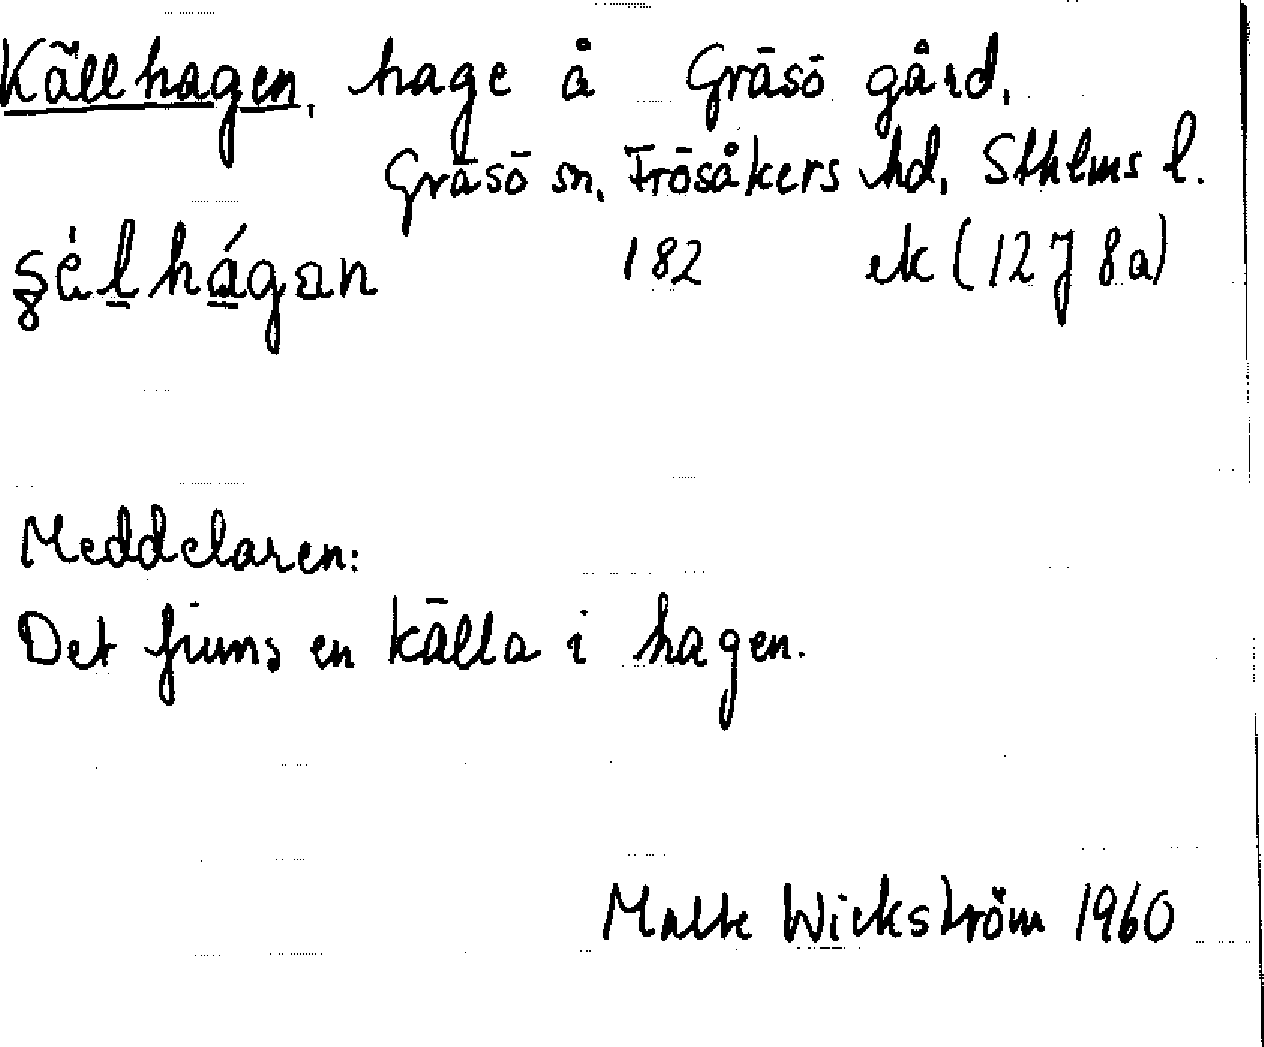 Källhagen, hage å Gräsö gård,
Gräsö sn, Frösåkers hd, Sthlms l.
182 ek (12J 8a)
Meddelaren:
Det finns en källa i hagen.
Malte Wickström 1960